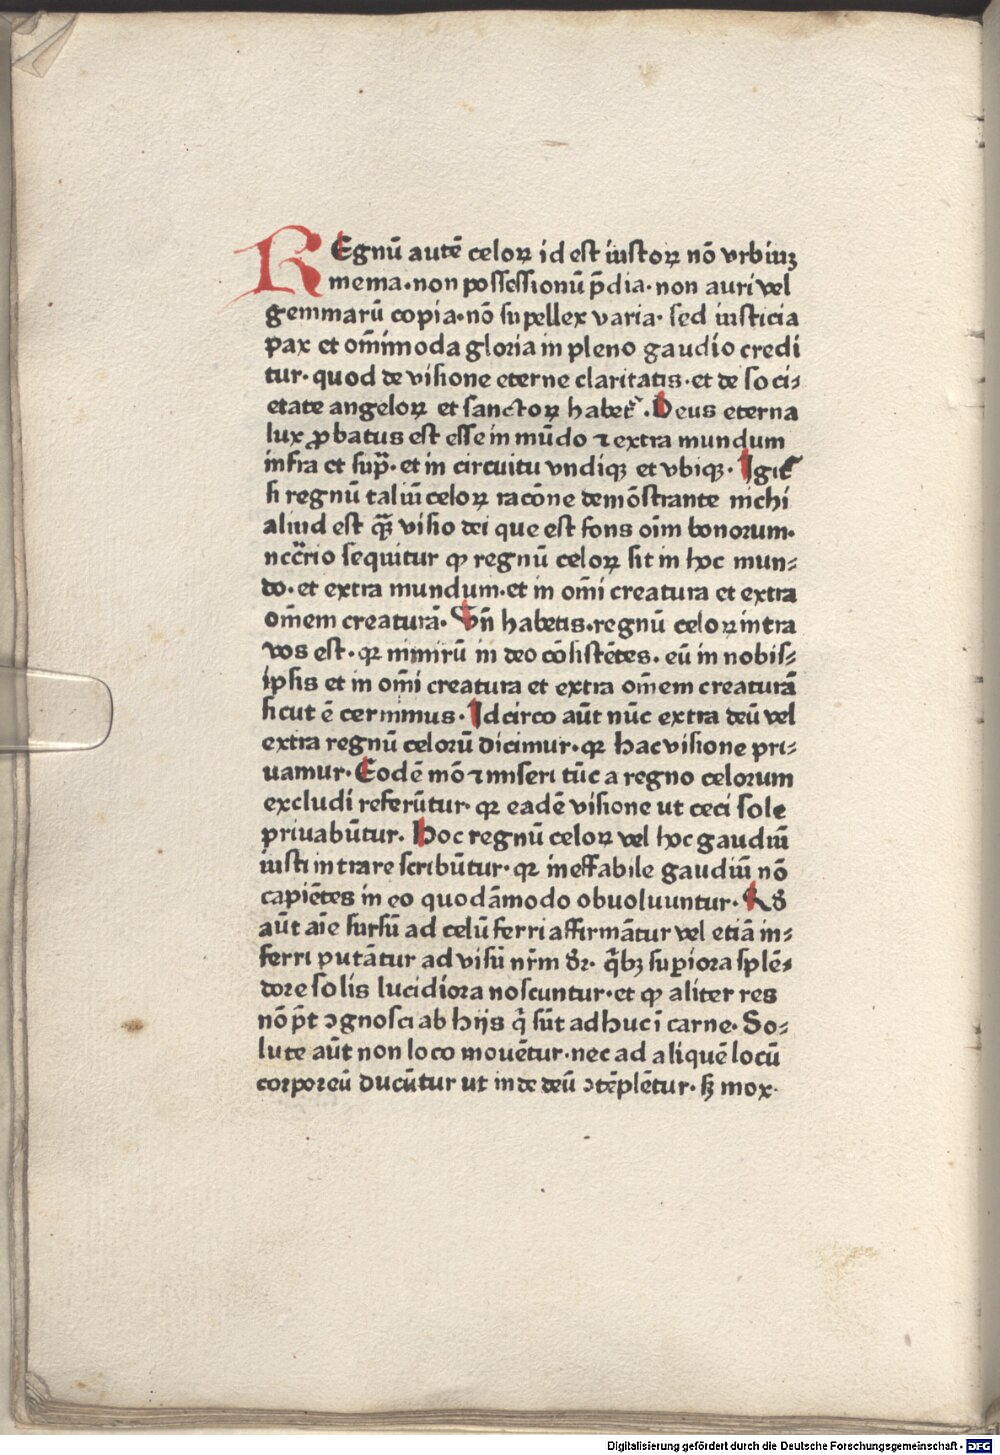 REgnū autē celoꝝ id est iustoꝝ nō vrbiūꝫ
mema·non possessionū p̄dia·non auri vel
gemmarū copia·nō supellex varia· sed iusticia
pax et om̄imoda gloria in pleno gaudio credi
tur·quod de visione eterne claritatis·et de soci⸗
etate angeloꝝ et sanctoꝝ habet᷑·Deus eterna
lux ꝓbatus est esse in mūdo ⁊ extra mundum
infra et supͣ·et in circuitu vndiqꝫ et vbiqꝫ·Igit᷑
si regnū taliū celoꝝ racōne demōstrante nichi
aliud est qͣꝫ visio dei que est fons oīm bonorum·
ncc̄rio sequitur ꝙ regnū celoꝝ sit in hoc mun⸗
do·et extra mundum·et in om̄i creatura et extra
om̄em creaturā·Vn̄ habetis·regnū celoꝝ intra
vos est·qꝛ nimirū in deo cōsistētes·eū in nobis⸗
ipsis et in om̄i creatura et extra om̄em creaturā
sicut ē cernimus·Idcirco aūt nūc extra deū vel
extra regnū celorū dicimur·qꝛ hac visione pri⸗
uamur·Eodē mō ⁊ miseri tūc a regno celorum
excludi referūtur·qꝛ eadē visione ut ceci sole
priuabūtur. Hoc regnū celoꝝ vel hoc gaudiū
iusti intrare scribūtur·qꝛ ineffabile gaudiū nō
capiētes in eo quodāmodo obuoluuntur·
aūt aīe sursū ad celū ferri affirmātur vel etiā in⸗
ferri putātur ad visū nr̄m dr̄· qͥbꝫ supiora splē⸗
dore solis lucidiora noscuntur·et ꝙ aliter res
nō pn̄t ↄgnosci ab hijs qͥ sūt adhuc ī carne·So⸗
lute aūt non loco mouētur·nec ad aliquē locū
corporeū ducūtur ut inde deū ↄtēplētur·sꝫ mox·
Digitalisierung gefördert durch die Deutsche Forschungsgemeinschaft - DFG